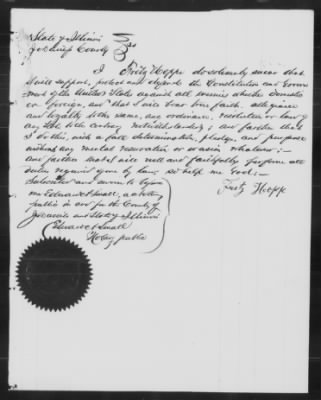 State of Illinois } ss
Jo Daviess County
I Fritz Hoppe do solemnly swear that
I will support, protect and defend the Constitution and Govern
ment of the United States against all enemies whether domestic
or foreign, and that I will bear true faith, allegiance
and loyalty to the same, any ordinance, resolution or law of
any State to the contrary notwithstanding; and further that
I do this, with a full determination, pledge, and purpose
without any mental reservation or evasion whatever:—
and further that I will well and faithfully perform all
duties required of me by law, so help me God:—
Subscribed and sworn to before
me Edward Small, a notary
public in and for the County of
Jo Daviess and State of Illinois
Fritz Hoppe
Small
Notary public